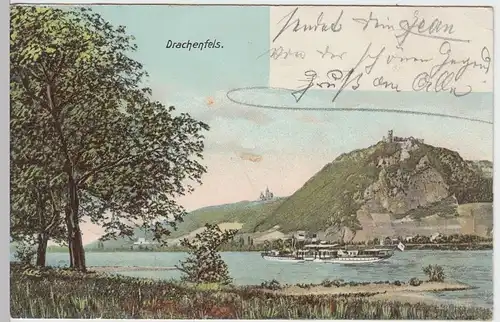 Drachenfels.
sendet Dein Jean
Von der schönen Gegend
Gruß an Alle